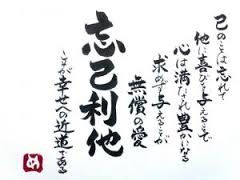 己のことは忘れて
他に喜びを与えることで
心は満たされ豊かになる
求めず与えることが
無償の愛
忘己利他
これが幸せへの近道である